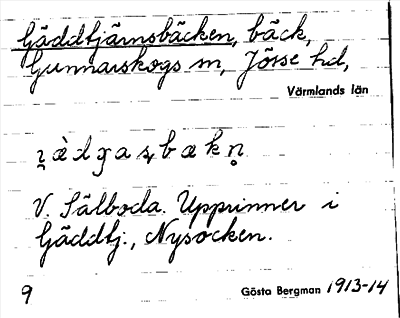 Gäddtjärnsbäcken, bäck,
Gunnarskogs sn, Jösse hd,
Värmlands län
V. Sälboda. Upprinner i
Gäddtj., Nysocken.
9 Gösta Bergman 1913-14